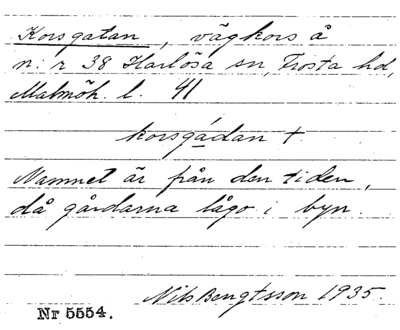 Korsgatan, vägkors å
n:r 38 Harlösa sn, Frosta hd,
Malmöh. l. 41
korsgádan †
Namnet är från den tiden,
då gårdarna lågo i byn.
Nils Bengtsson 1935.
Nr 5554.